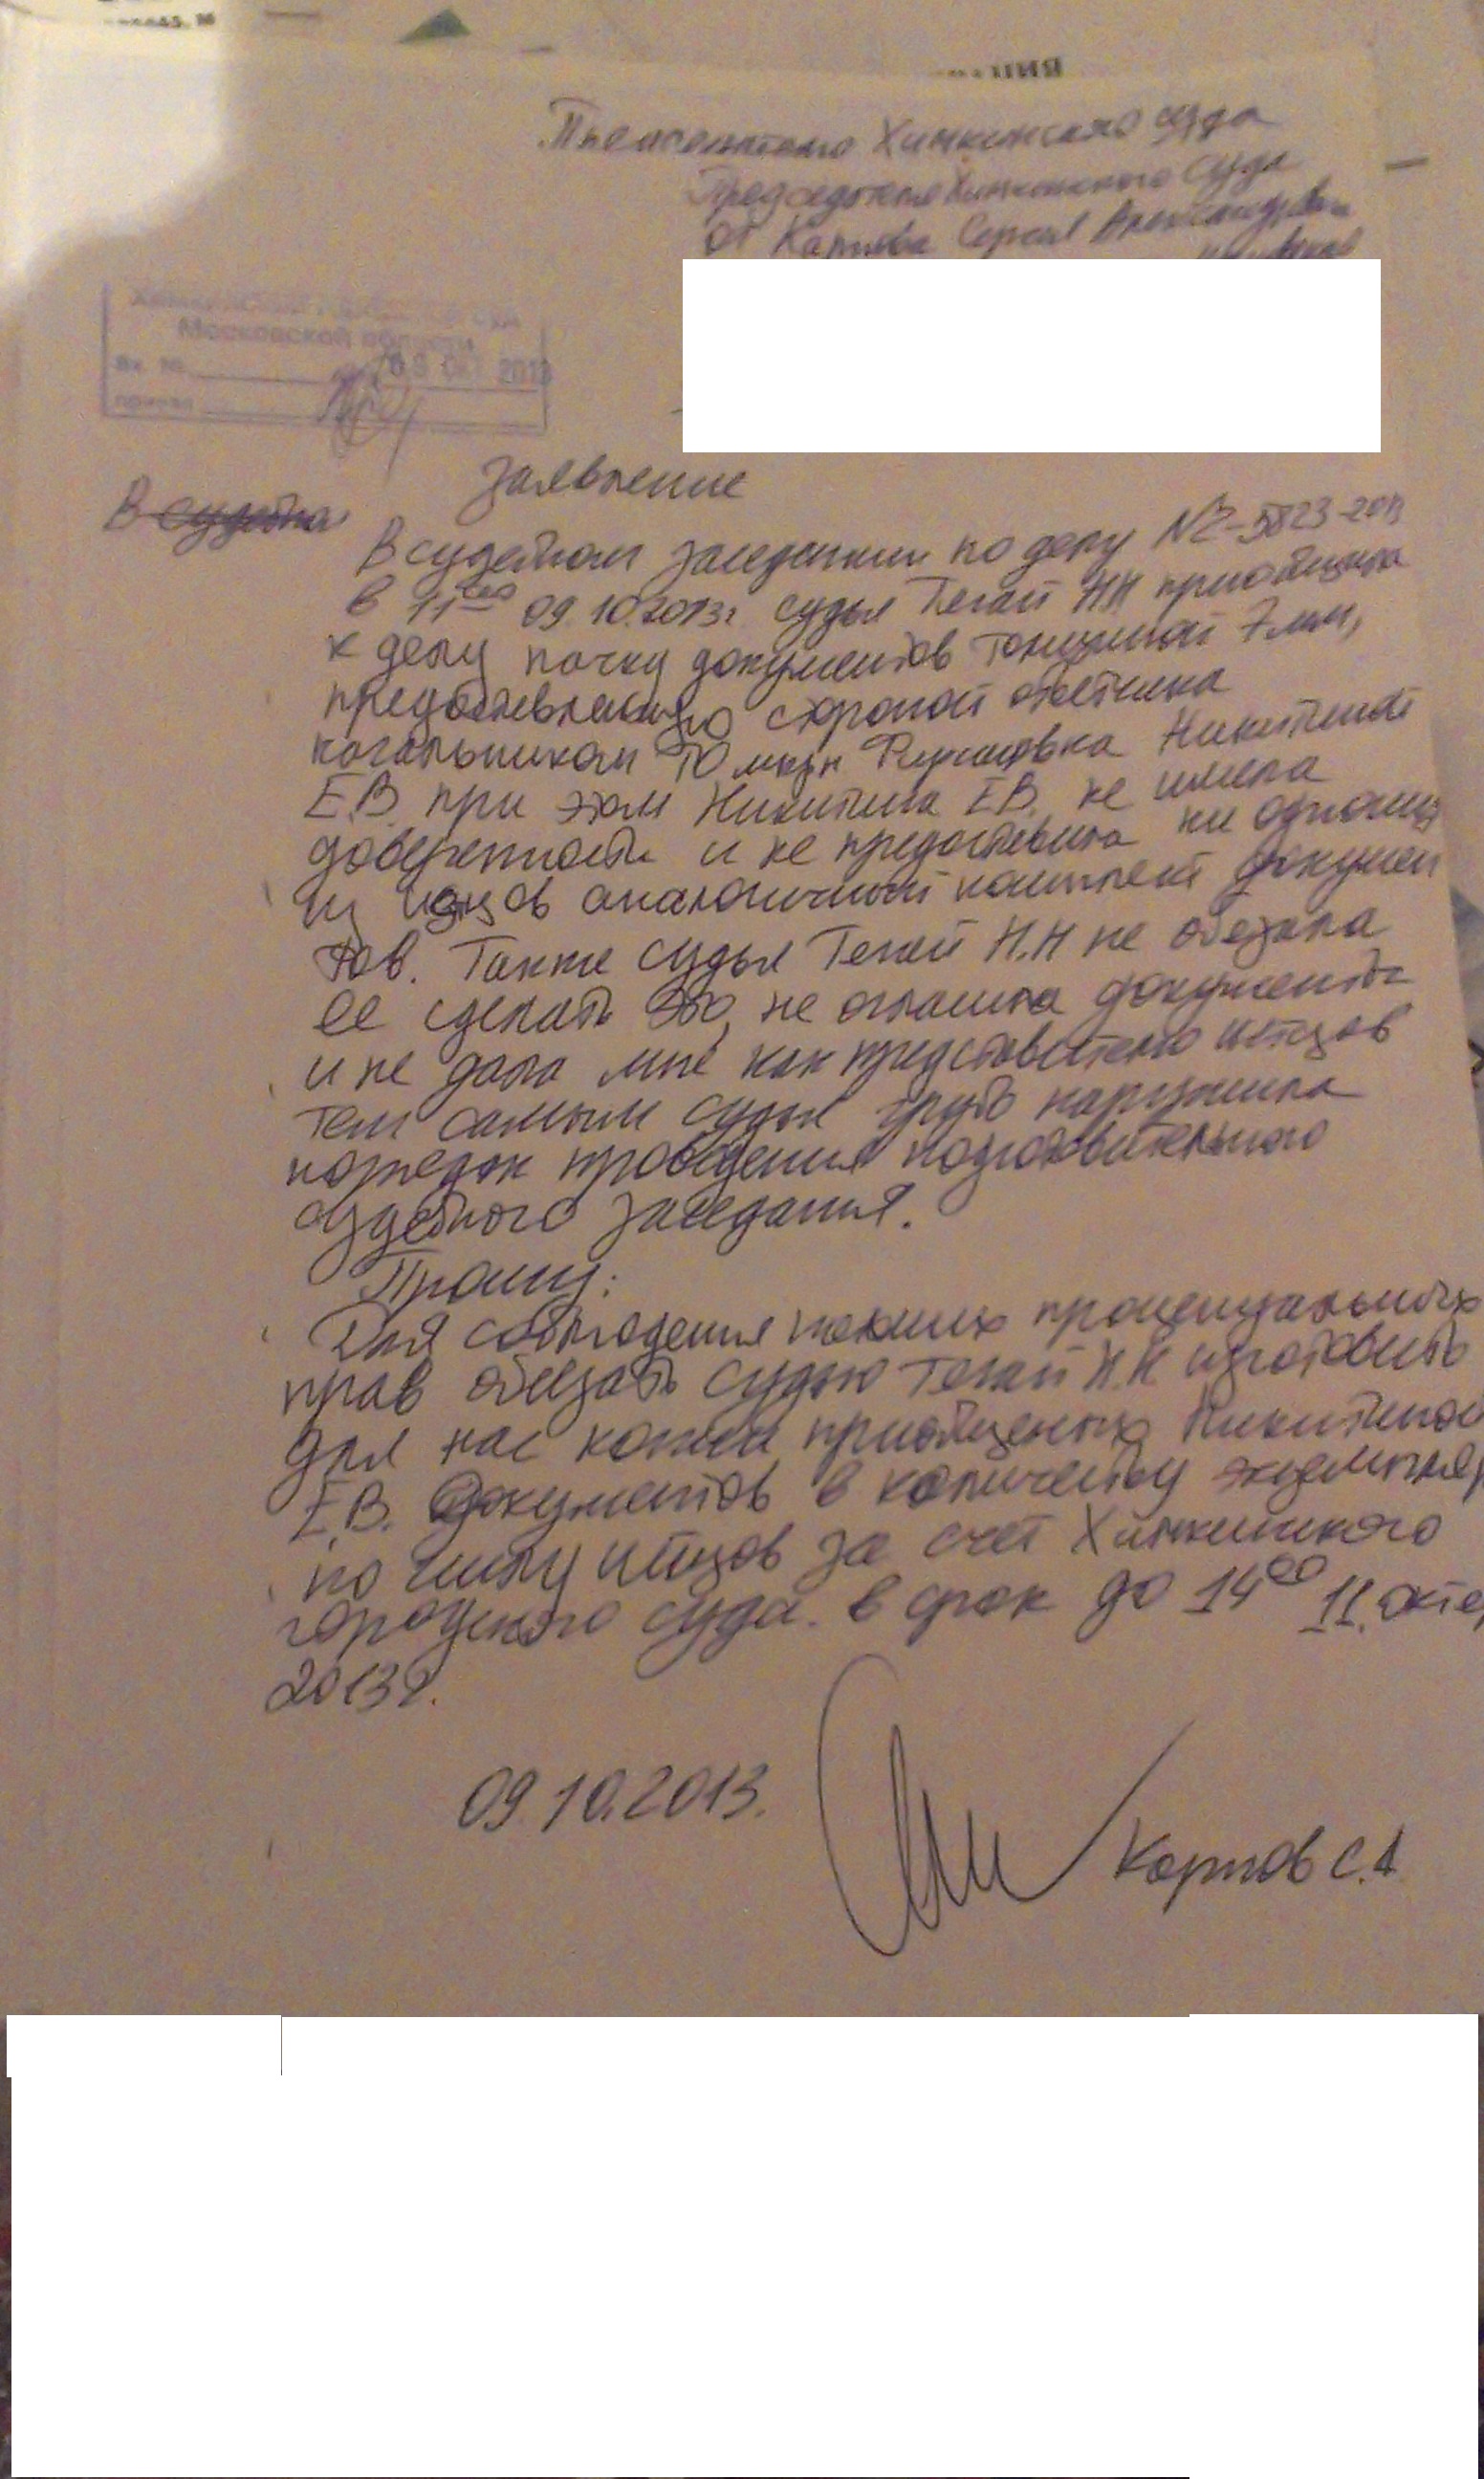 Химкинского суда
Председателя Химкинского суда
От Карпова Сергея Александрович
Химкинский городской суд
Московской области
Вх. №
09 ОКТ 2013
принял
Заявление
В судебно
В судебном заседании по делу №2-5823-2013
в 11 00 09.10.2013г. судья Тегай Н.Н приобщила
к делу пачку документов толщиной 7мм,
предоставленную стороной ответчика
начальником ЮО мкрн Фирсановка Никитиной
Е.В. при этом Никитина Е.В. не имела
доверенности и не предоставила ни одному
из истцов аналогичный комплект докумен
тов. Также судья Тегай Н.Н не обязала
ее сделать это, не огласила документы
и не дала мне как представителю истцов
тем самым судья грубо нарушила
порядок проведения подготовительного
судебного заседания.
Прошу:
Для соблюдения наших процецуальных
прав обязать судью Тегай Н.Н изготовить
для нас копии приобщеных Никитиной
Е.В. документов в количеству экземпляр
по числу истцов за счет Химкинского
городского суда. в срок до 14 00 11. октя
2013г.
09.10.2013.
Карпов С.А